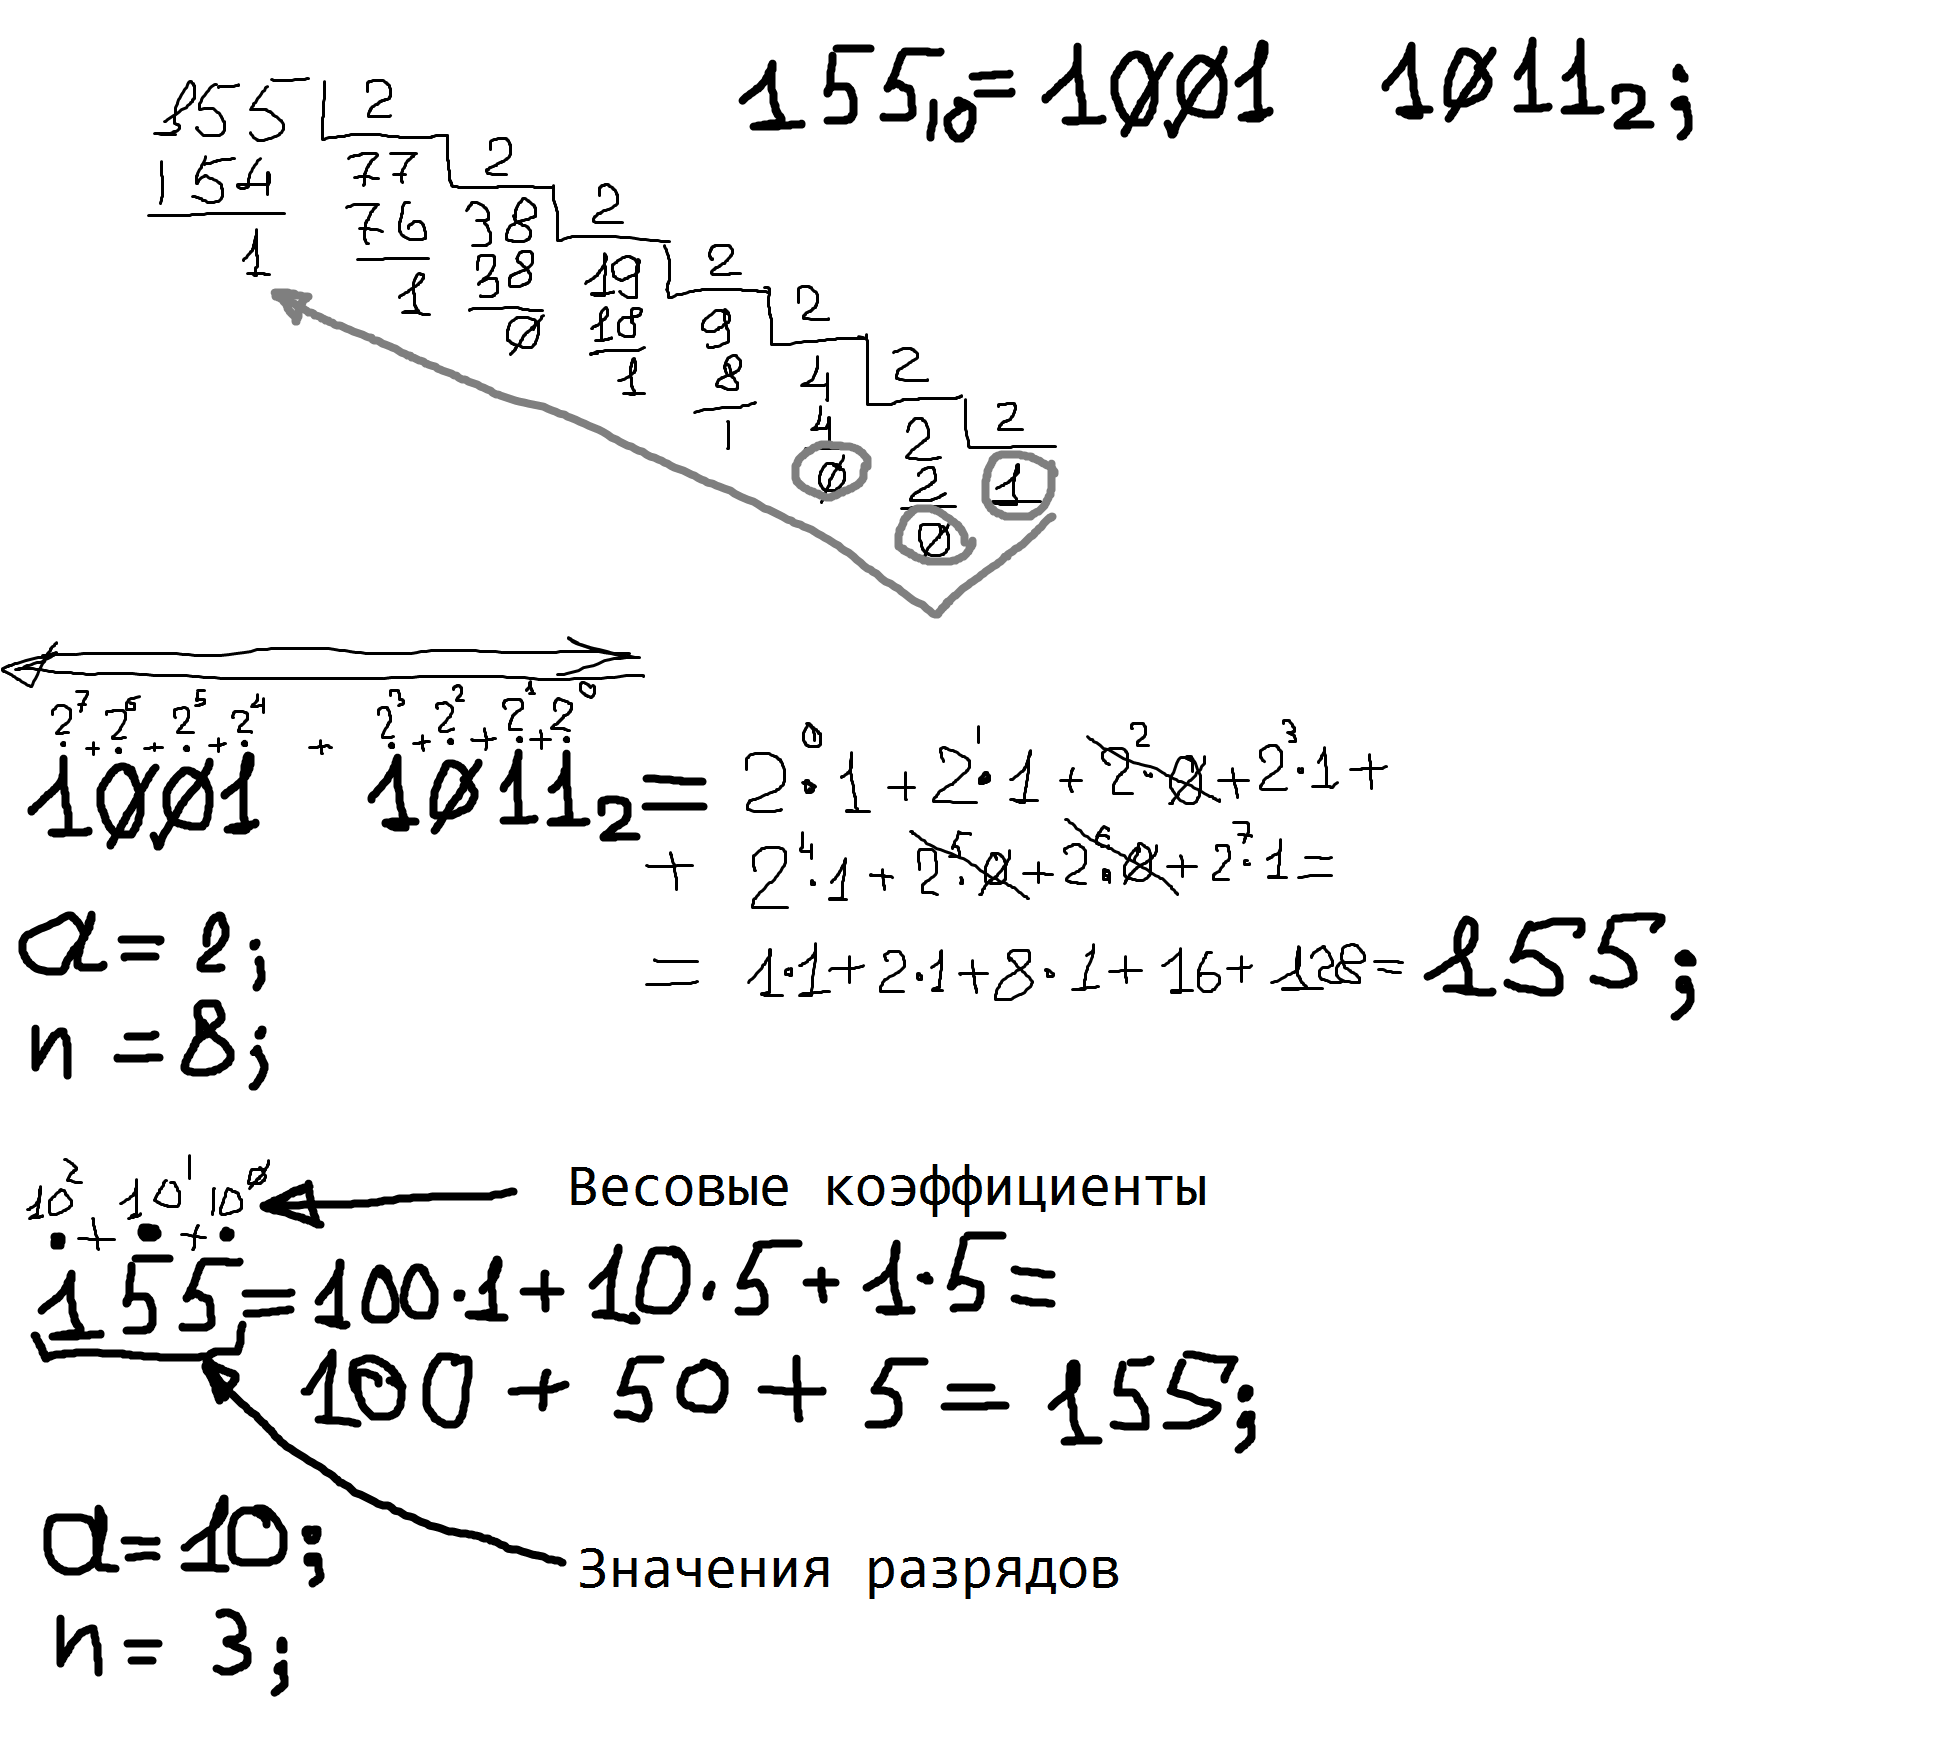 155₁₀ = 1001 1011₂;
155 2
154 77 2
1 76 38 2
1 38 19 2
0 18 9 2
1 8 4 2
1 4 2 2
0 2 1
0
2⁷ + 2⁶ + 2⁵ + 2⁴ + 2³ + 2² + 2¹ + 2⁰
1001 1011₂ = 2⁰·1 + 2¹·1 + 2²·0 + 2³·1 +
+ 2⁴·1 + 2⁵·0 + 2⁶·0 + 2⁷·1 =
= 1·1 + 2·1 + 8·1 + 16 + 128 = 155;
a = 2;
n = 8;
10² + 10¹ + 10⁰ Весовые коэффициенты
155 = 100·1 + 10·5 + 1·5 =
100 + 50 + 5 = 155;
a = 10;
Значения разрядов
n = 3;